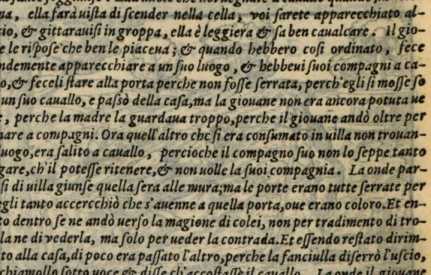 ua, ella farà uista di scender nella cella, voi sarete apparecchiato al-
cio, & gittarauisi in groppa, ella è leggiera & sa ben caualcare. Il gio-
le rispose che ben le piaceua; & quando hebbero cosi ordinato, fece
ndemente apparecchiare a un suo luogo, & hebbeui suoi compagni a ca-
o, & feceli stare alla porta perche non fosse serrata, perch'egli si mosse so
un suo cauallo, e passò della casa, ma la giouane non era ancora potuta ue
, perche la madre la guardaua troppo, perche il giouane andò oltre per
nare a compagni. Ora quell'altro che si era consumato in uilla non trouan-
luogo, era salito a cauallo, percioche il compagno suo non lo seppe tanto
gare, ch'il potesse ritenere, & non uolle la suoi compagnia. La onde par-
si di uilla giunse quella sera alle mura; ma le porte erano tutte serrate per
egli tanto accercchiò che s'auenne a quella porta, oue erano coloro. Et en-
to dentro se ne andò uerso la magione di colei, non per tradimento di tro-
la ne di vederla, ma solo per ueder la contrada. Et essendo restato dirim-
to alla casa, di poco era passato l'altro, perche la fanciulla diserrò l'uscio,
chiamollo sotto uoce & disse ch'accostasse il cauallo. La onde il giouane